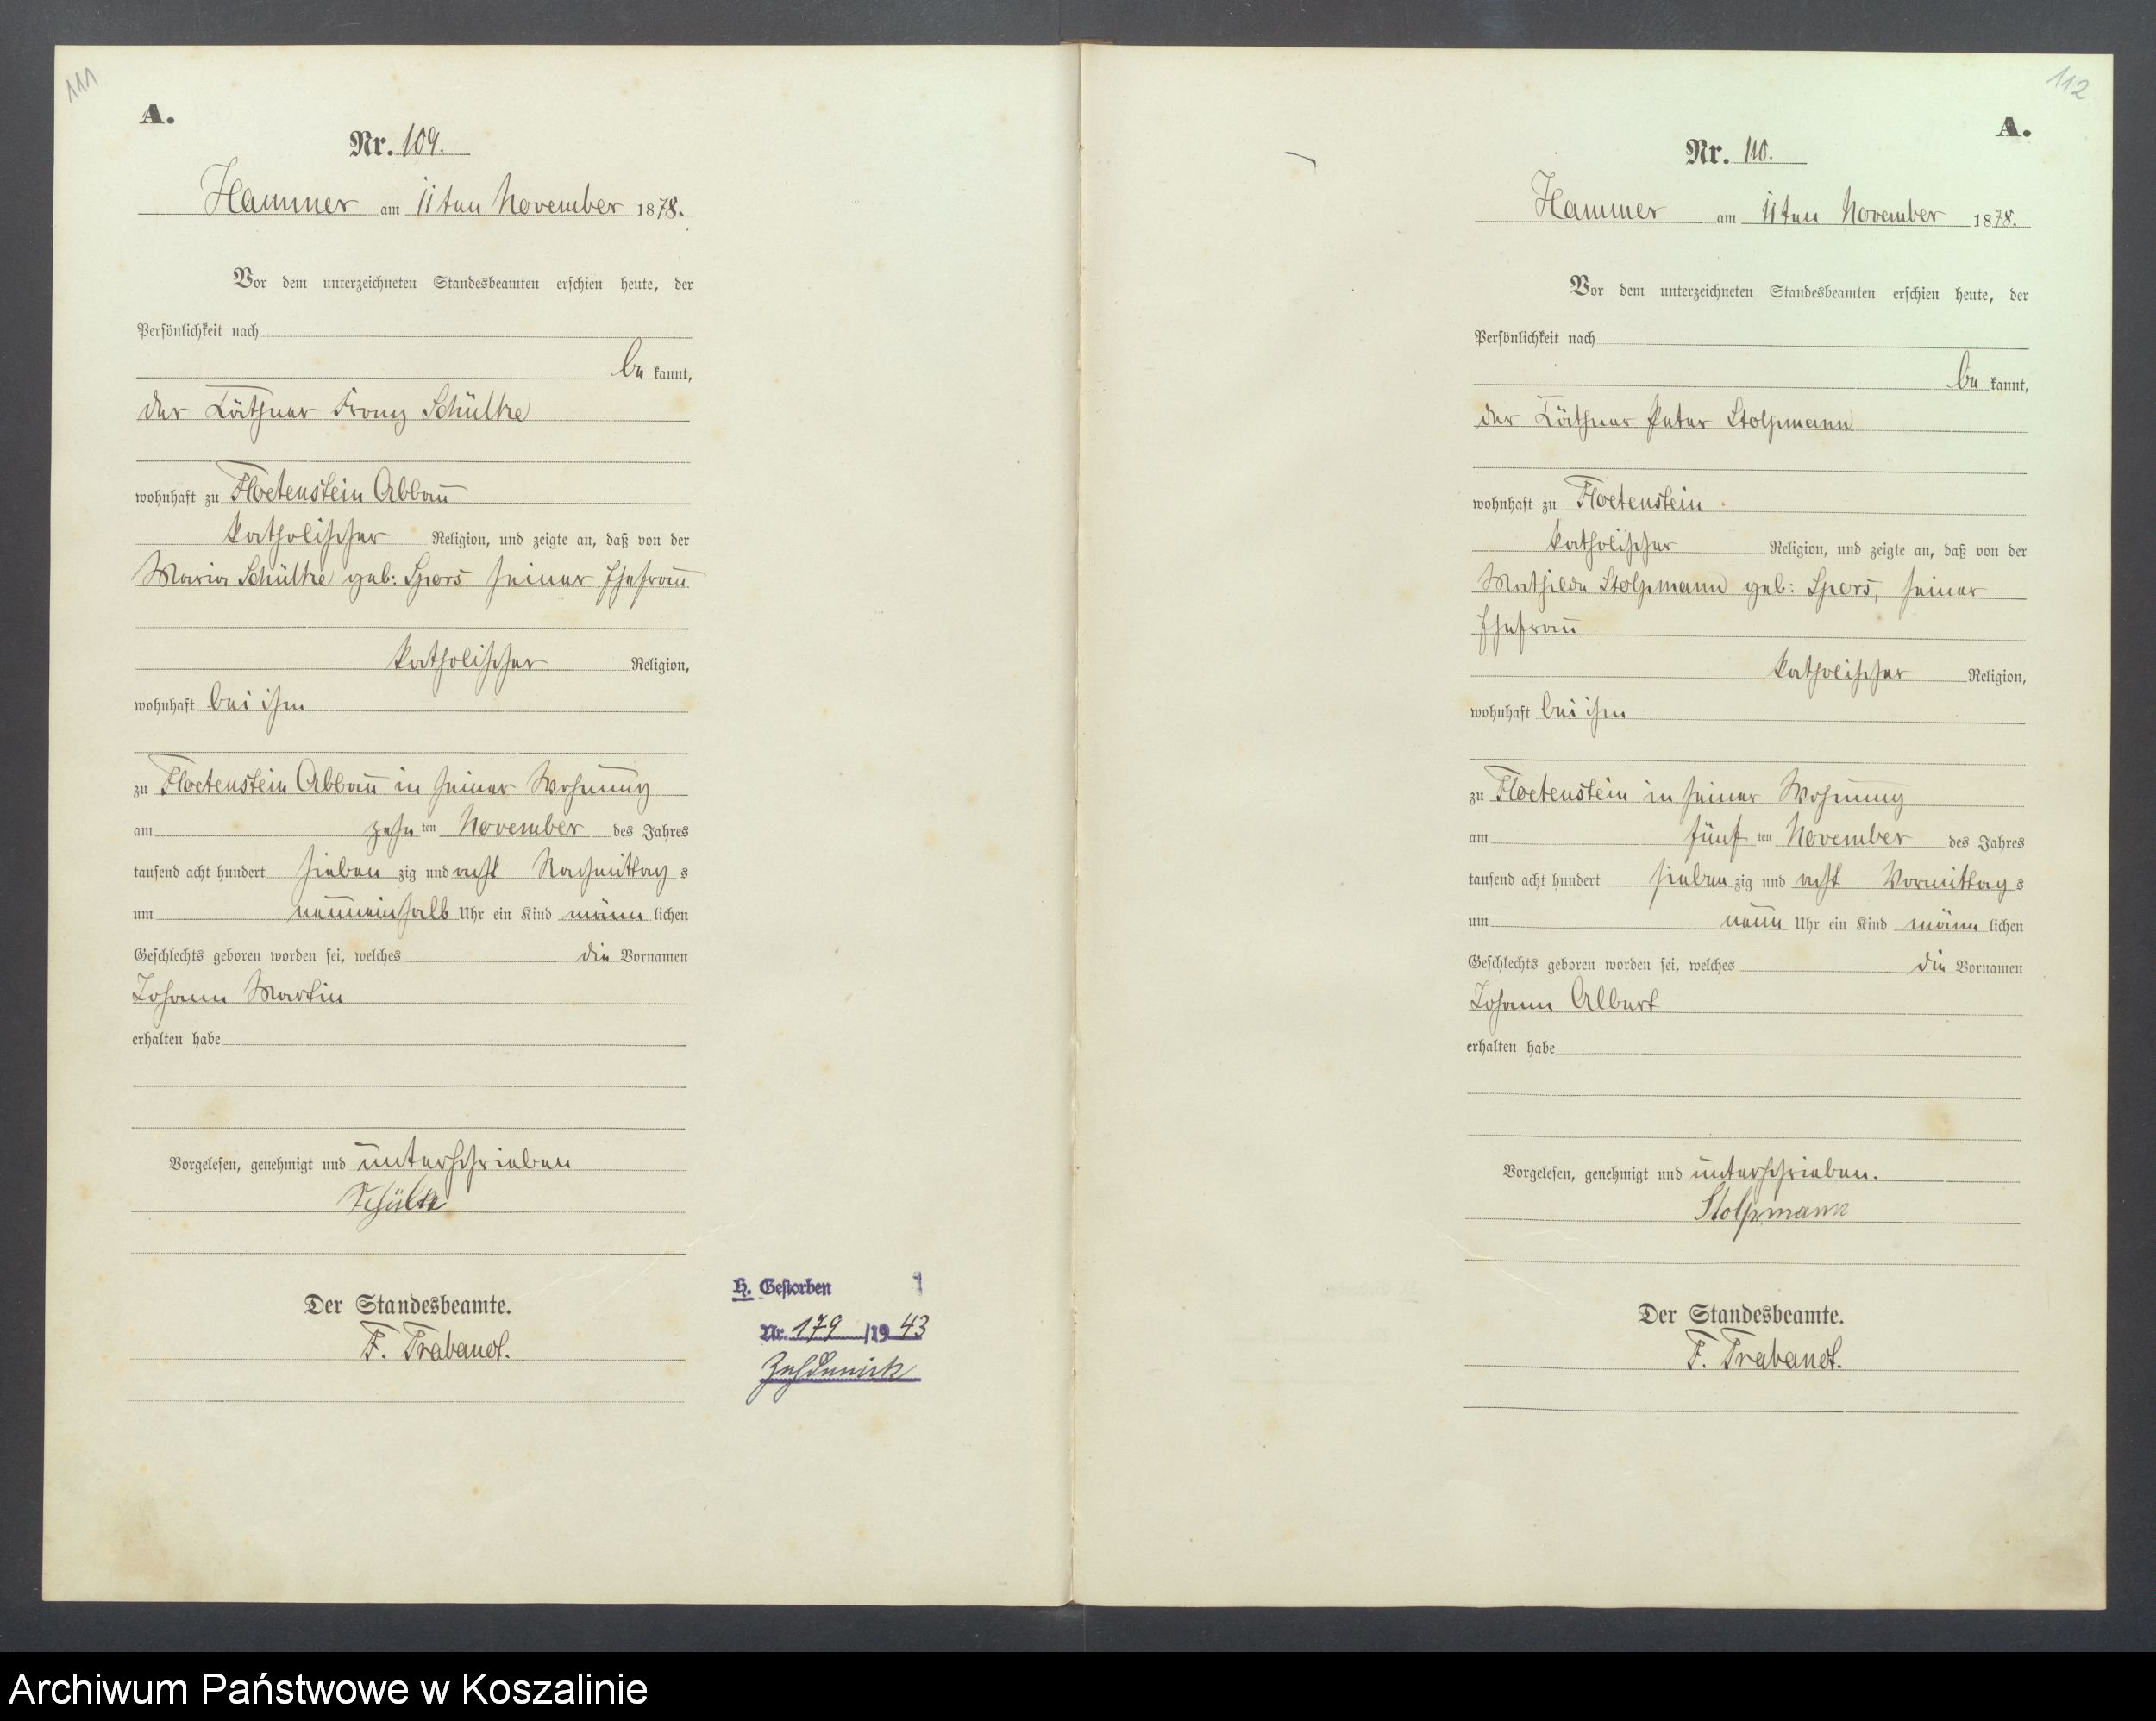 111
A.
Nr. 109.
Hammer am 11ten November 1878.
Vor dem unterzeichneten Standesbeamten erschien heute, der
Persönlichkeit nach
be kannt,
der Käthner Franz Schültke
wohnhaft zu Floetenstein Abbau
katholischer Religion, und zeigte an, daß von der
Maria Schültke geb: Spors seiner Ehefrau
katholischer Religion,
wohnhaft bei ihm
zu Floetenstein Abbau in seiner Wohnung
am zehn ten November des Jahres
tausend acht hundert sieben zig und acht Nachmittag s
um neuneinhalb Uhr ein Kind männ lichen
Geschlechts geboren worden sei, welches die Vornamen
Johann Martin
erhalten habe
Vorgelesen, genehmigt und unterschrieben
Schültke
Der Standesbeamte.
F. Trabandt.
H. Gestorben 1
Nr. 179 /19 43
Zehdenick
112
A.
Nr. 110.
Hammer am 11ten November 1878.
Vor dem unterzeichneten Standesbeamten erschien heute, der
Persönlichkeit nach
be kannt,
der Käthner Peter Stolpmann
wohnhaft zu Floetenstein
katholischer Religion, und zeigte an, daß von der
Mathilde Stolpmann geb: Spors, seiner
Ehefrau
katholischer Religion,
wohnhaft bei ihm
zu Floetenstein in seiner Wohnung
am fünf ten November des Jahres
tausend acht hundert sieben zig und acht Vormittag s
um neun Uhr ein Kind männ lichen
Geschlechts geboren worden sei, welches die Vornamen
Johann Albert
erhalten habe
Vorgelesen, genehmigt und unterschrieben.
Stolpmann
Der Standesbeamte.
F. Trabandt.
Archiwum Państwowe w Koszalinie